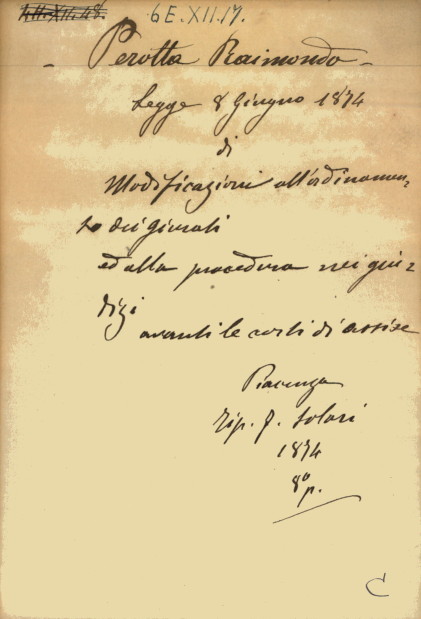 6E.XII.17.
- Perotta Raimondo -
Legge 8 Giugno 1874
di
Modificazioni all'ordinamen-
to dei giurati
ed alla procedura nei giu-
dizi
avanti le corti di assise
Piacenza
Tip. F. Solari
1874
8º p.
C